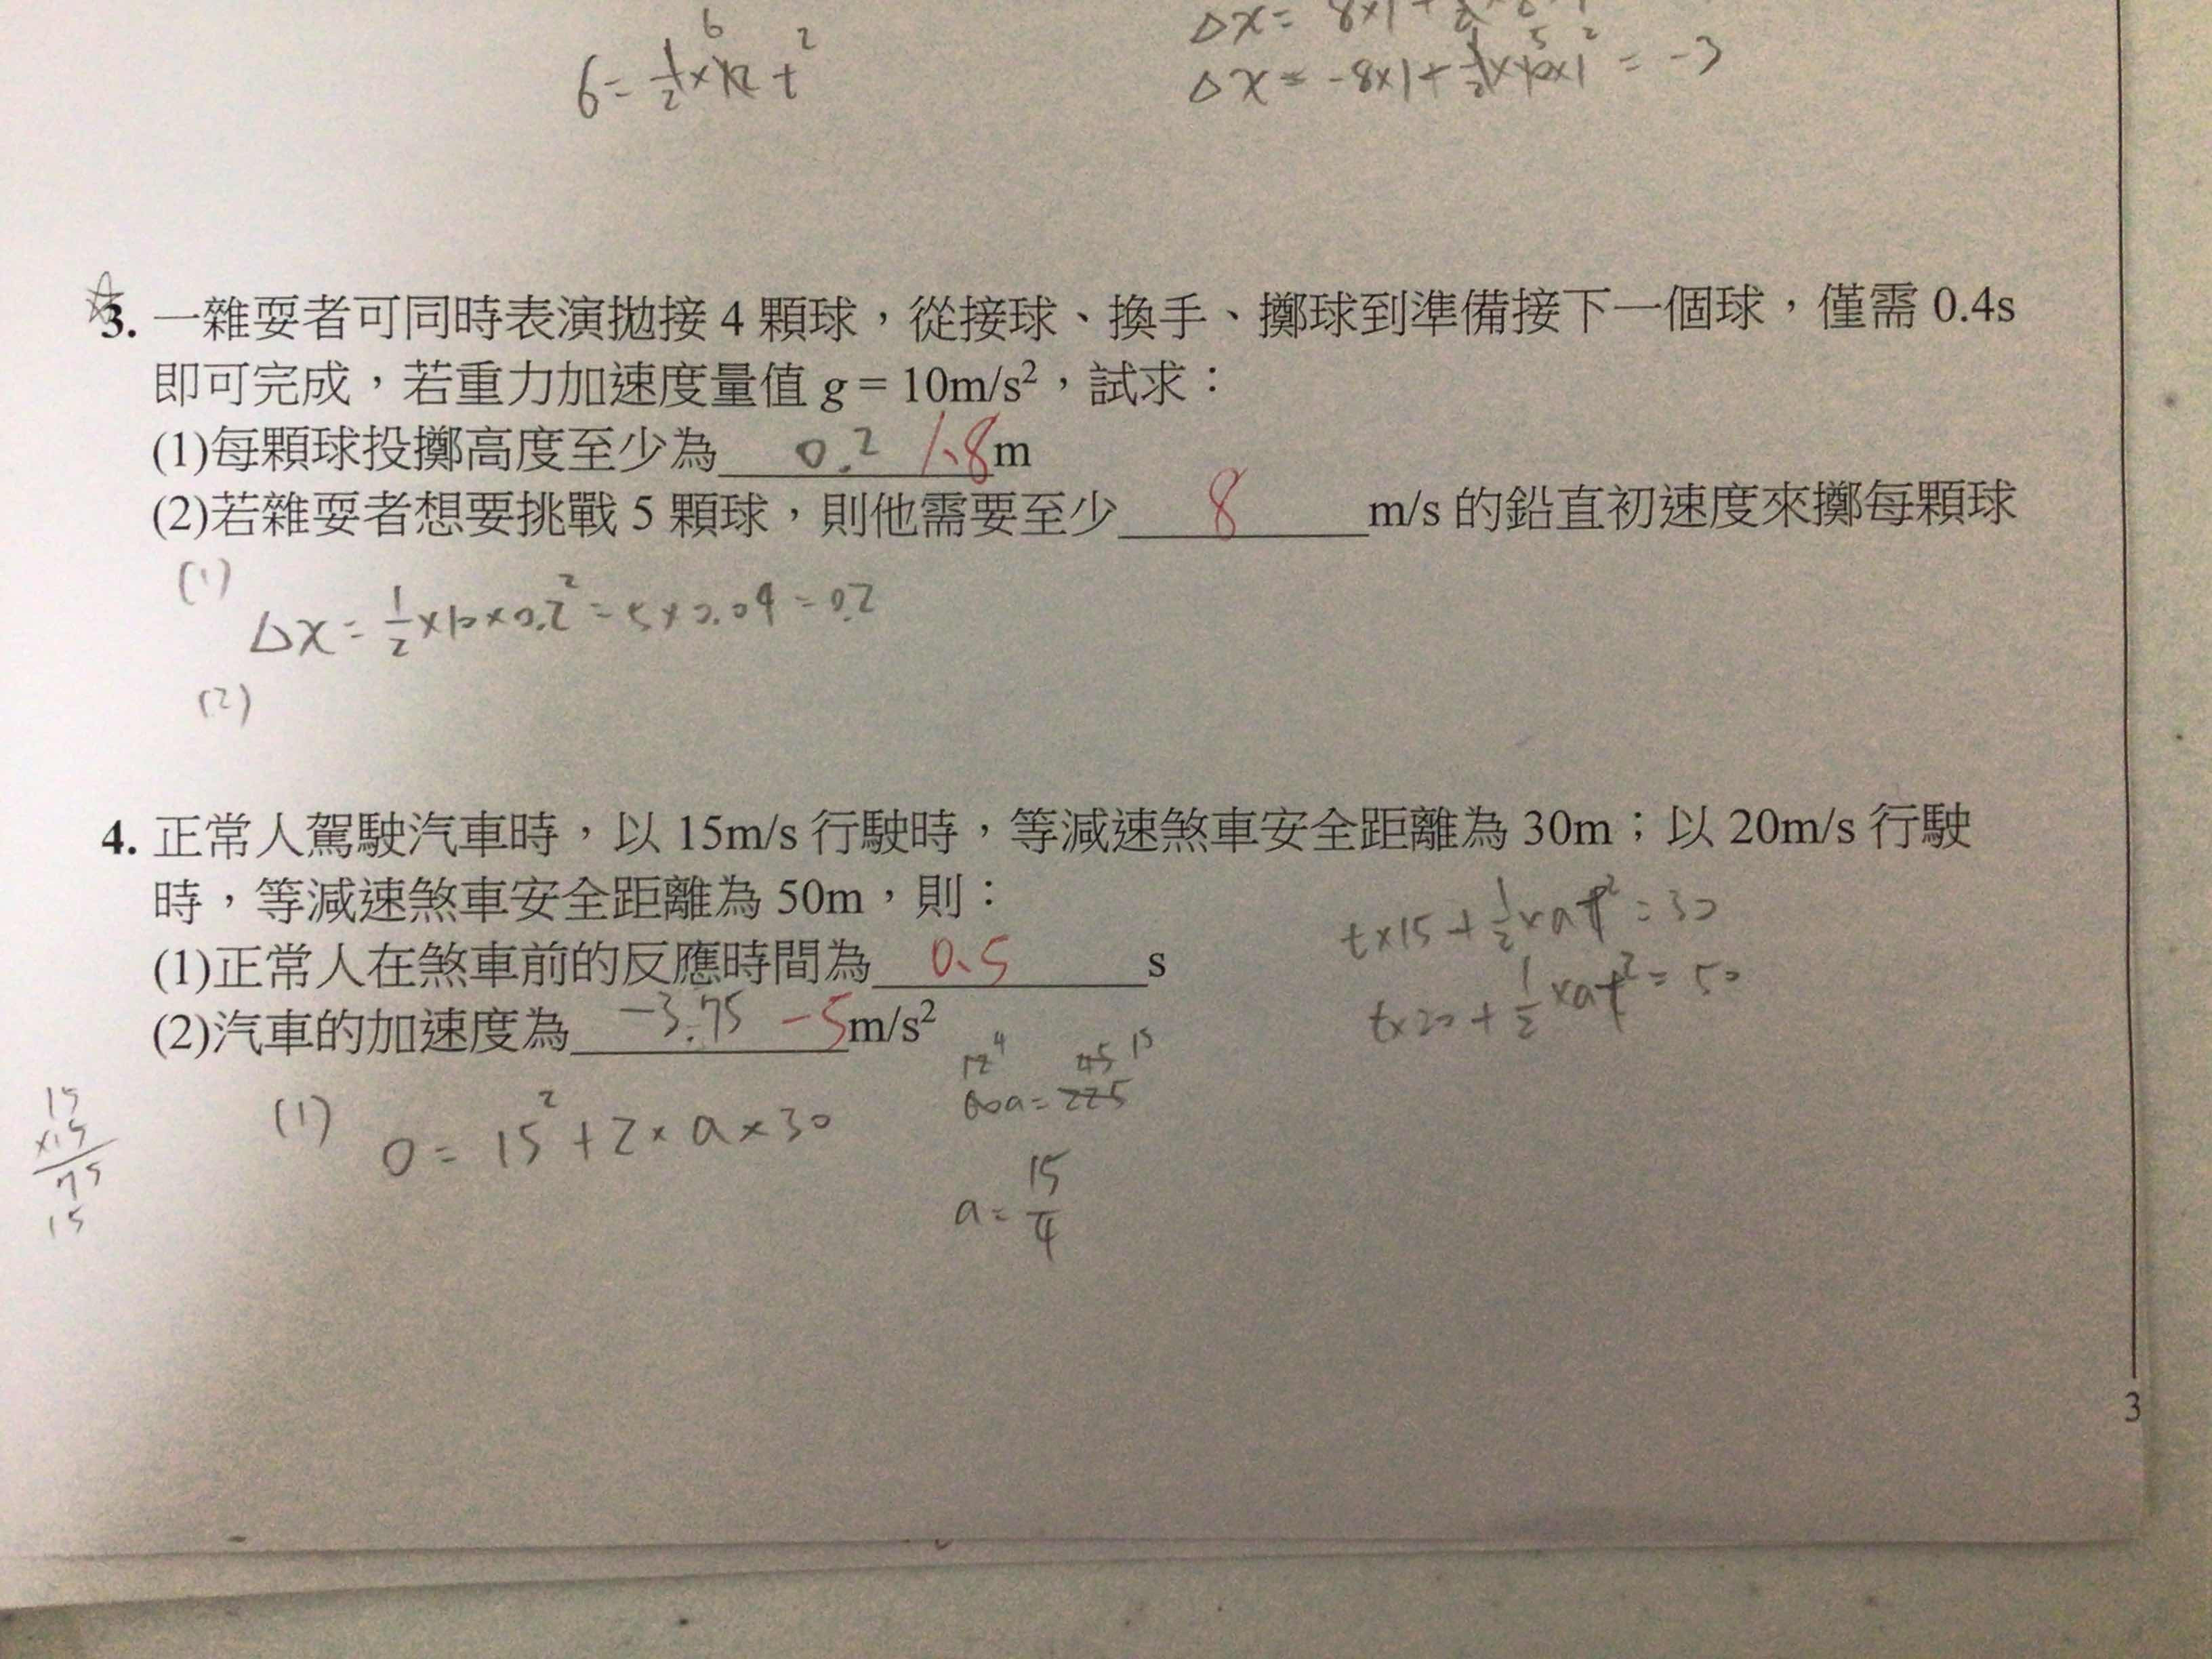 6
6=1/2×12 t²
Δx= 8×1+
Δx = -8×1+1/2×10×1² = -3
5
☆
3. 一雜耍者可同時表演拋接 4 顆球，從接球、換手、擲球到準備接下一個球，僅需 0.4s
即可完成，若重力加速度量值 g = 10m/s²，試求：
(1)每顆球投擲高度至少為 0.2 1.8 m
(2)若雜耍者想要挑戰 5 顆球，則他需要至少 8 m/s 的鉛直初速度來擲每顆球
(1)
Δx = 1/2×10×0.2² = 5×0.04 = 0.2
(2)
4. 正常人駕駛汽車時，以 15m/s 行駛時，等減速煞車安全距離為 30m；以 20m/s 行駛
時，等減速煞車安全距離為 50m，則：
(1)正常人在煞車前的反應時間為 0.5 s
(2)汽車的加速度為 -3.75 -5 m/s²
t×15 + 1/2×at² = 30
t×20 + 1/2×at² = 50
(1) 0 = 15² + 2×a×30
12 4 45 15
60a = 225
a = 15/4
15
×15
75
15
3